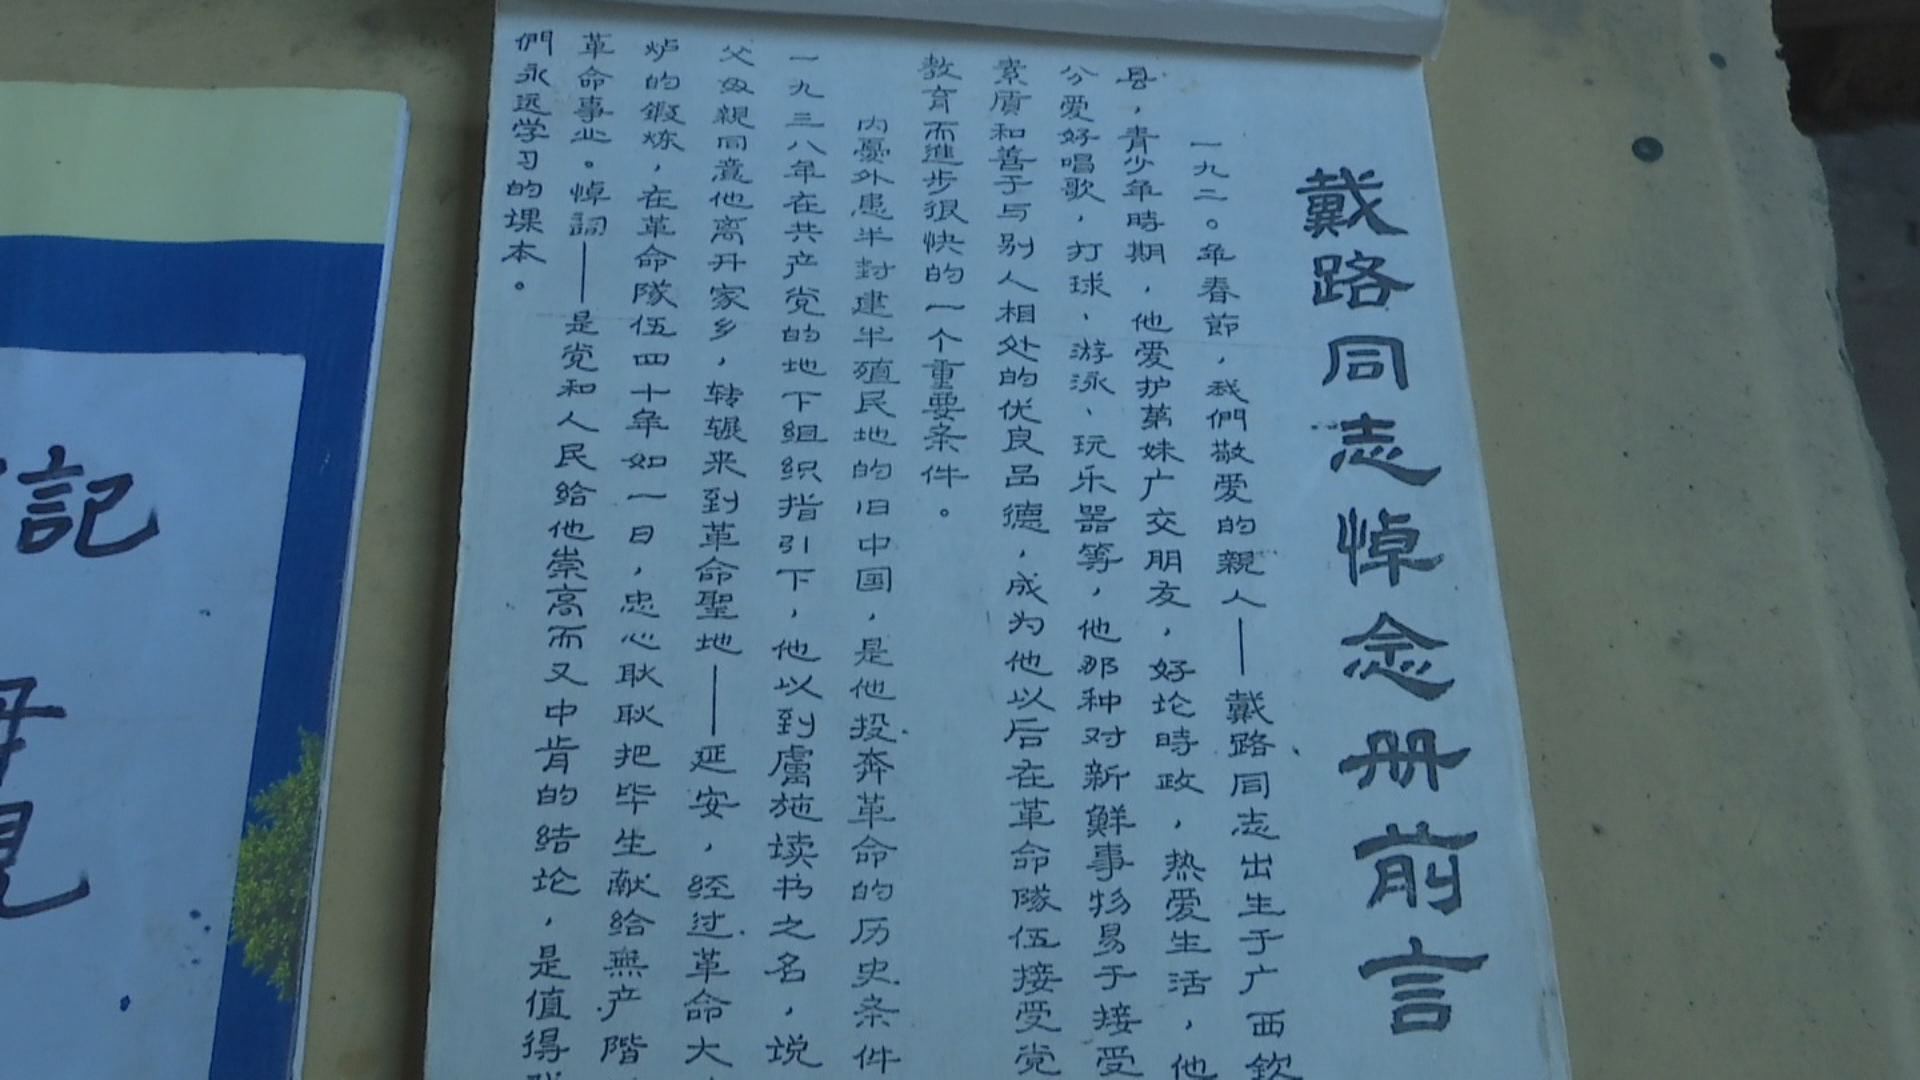 戴路同志悼念册前言
一九二〇年春節，我們敬爱的親人——戴路同志出生于广西欽
县，青少年時期，他爱护苐妹广交朋友，好论時政，热爱生活，他
分爱好唱歌，打球、游泳、玩乐器等，他那种对新鮮事物易于接受
素质和善于与别人相处的优良品德，成为他以后在革命隊伍接受党
教育而進步很快的一个重要条件。
内憂外患半封建半殖民地的旧中国，是他投奔革命的历史条件
一九三八年在共产党的地下组织指引下，他以到膚施读书之名，说
父母親同意他离开家乡，转辗来到革命聖地——延安，经过革命大
炉的鍛炼，在革命隊伍四十年如一日，忠心耿耿把毕生献给無产階
革命事业。悼詞——是党和人民给他崇高而又中肯的结论，是值得
們永远学习的课本。
記
母